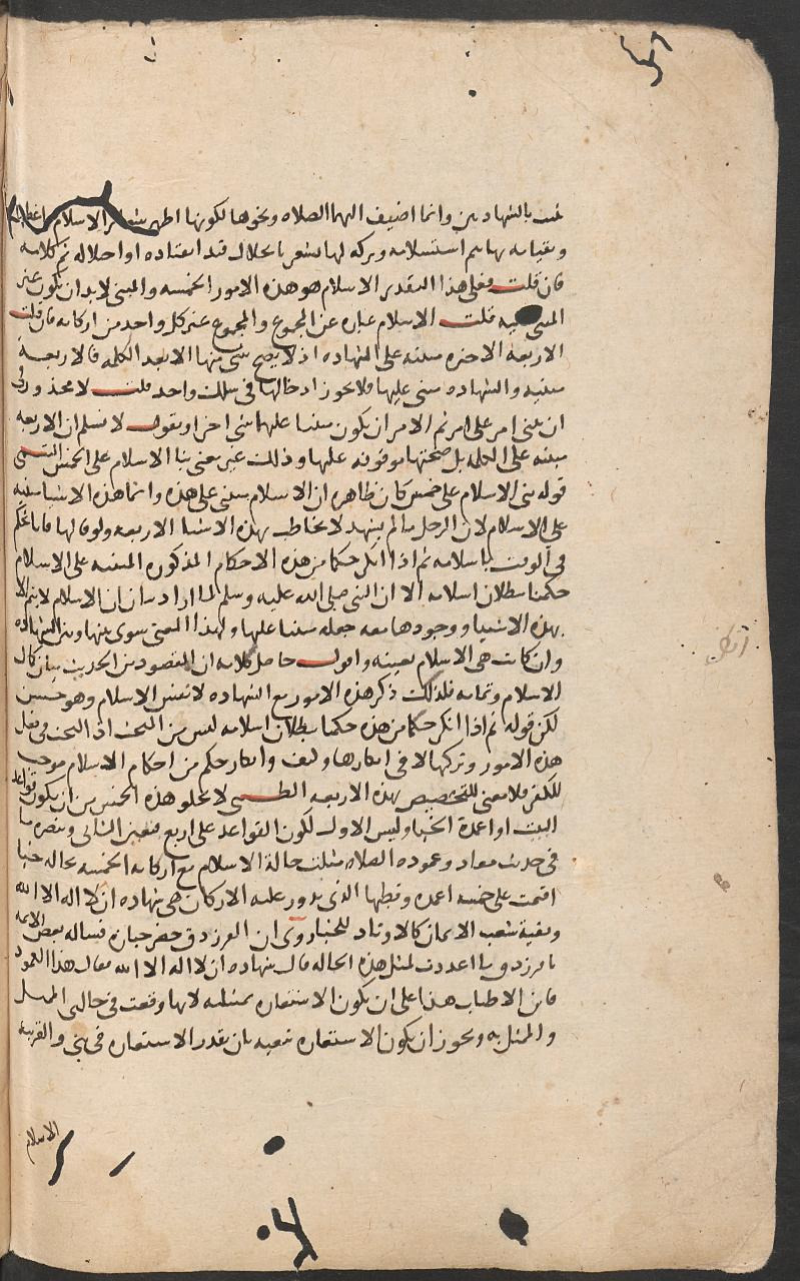 بالشهادتين وانما اضيف اليهما الصلاه ونحوها لكونها اظهر شعائر الاسلام
وبقيامه بها يتم استسلامه وتركه لها يشعر بانحلال قيد انقياده او اختلاله تم كلامه
فان قلت فعلى هذا التقدير الاسلام هو هذه الامور الخمسه والمبنى لابد ان يكون غير
المبنى عليه قلت الاسلام عباره عن المجموع والمجموع غير كل واحد من اركانه فان قلت
الاربعه الاخيره مبنيه على الشهاده اذ لا يصح شى منها الا بعد الكلمه فالاربعه
مبنيه والشهاده مبنى عليها فلا يجوز ادخالها فى سلك واحد قلت لا محذور فى
ان يبنى امر على امر ثم الامر ان يكون مبنيا عليهما شى اخر او نقول لا نسلم ان الاربعه
مبنيه على الكلمه بل صحتها موقوفه عليها وذلك غير معنى بنا الاسلام على الخمس التيمى
قوله بنى الاسلام على خمس كان ظاهره ان الاسلام مبنى على هذه وانما هذه الاشيا مبنيه
على الاسلام لان الرجل ما لم يشهد لا يخاطب بهذه الاشيا الاربعه ولو قالها فانا نحكم
فى الوقت باسلامه ثم اذا انكر حكما من هذه الاحكام المذكوره المبنيه على الاسلام
حكمنا ببطلان اسلامه الا ان النبى صلى الله عليه وسلم لما اراد بيان ان الاسلام لا يتم الا
بهذه الاشيا ووجودها معه جعله مبنيا عليها ولهذا المعنى سوى بينها وبين الشهاده
وان كانت هى الاسلام بعينه واقول حاصل كلامه ان المقصود من الحديث بيان كمال
الاسلام وتمامه فلذلك ذكر هذه الامور مع الشهاده لا نفس الاسلام وهو حسن
لكن قوله ثم اذا انكر حكما من هذه حكمنا ببطلان اسلامه ليس من البحث اذ البحث فى فعل
هذه الامور وتركها لا فى انكارها وكيف وانكار حكم من احكام الاسلام موجب
للكفر فلا معنى للتخصيص بهذه الاربعه الطيبى لا تخلو هذه الخمس من ان يكون قواعد
البيت او اعمدة الخبا وليس الاول لكون القواعد على اربع فتعين الثانى وينصره ما
فى حديث معاذ وعموده الصلاه مثلت حالة الاسلام مع اركانه الخمسه بحاله خبا
اقيمت على خمسه اعمده وقطبها الذى يدور عليه الاركان هى شهاده ان لا اله الا الله
وبقية شعب الايمان كالاوتاد للخبا روى ان الفرزدق حضر جنازه فساله بعض الائمه
يا فرزدق ما اعددت لمثل هذه الحاله قال شهاده ان لا اله الا الله فقال هذا العمود
فاين الاطناب هذا على ان يكون الاستعاره تمثيليه لانها وقعت فى حالتى الممثل
والممثل به ويجوز ان يكون الاستعاره تبعيه بان يقدر الاستعاره فى بنى والقرينه
الاسلام